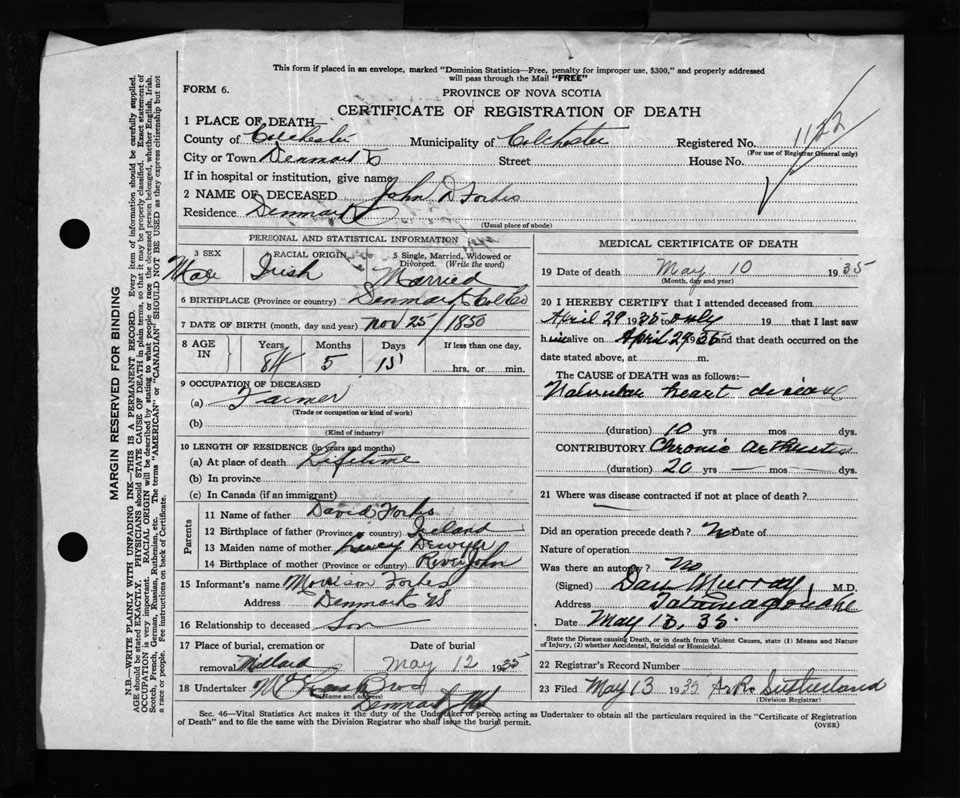 This form if placed in an envelope, marked "Dominion Statistics—Free, penalty for improper use, $300," and properly addressed
will pass through the Mail "FREE"
FORM 6.
PROVINCE OF NOVA SCOTIA
CERTIFICATE OF REGISTRATION OF DEATH
1 PLACE OF DEATH—
County of Colchester Municipality of Colchester Registered No. 1122
(For use of Registrar General only)
City or Town Denmark Street House No.
If in hospital or institution, give name
2 NAME OF DECEASED John D Forbes
Residence Denmark
(Usual place of abode)
PERSONAL AND STATISTICAL INFORMATION
3 SEX RACIAL ORIGIN 5 Single, Married, Widowed or
Divorced. (Write the word)
Male Irish Married
6 BIRTHPLACE (Province or country) Denmark Col Co
7 DATE OF BIRTH (month, day and year) Nov 25/1850
8 AGE IN Years Months Days If less than one day,
84 5 15 hrs. or min.
9 OCCUPATION OF DECEASED
(a) Farmer
(Trade or occupation or kind of work)
(b)
(Kind of industry)
10 LENGTH OF RESIDENCE (in years and months)
(a) At place of death Lifetime
(b) In province
(c) In Canada (if an immigrant)
Parents
11 Name of father David Forbes
12 Birthplace of father (Province or country) Ireland
13 Maiden name of mother Lucy
14 Birthplace of mother (Province or country) River John
15 Informant's name Morrison Forbes
Address Denmark NS
16 Relationship to deceased Son
17 Place of burial, cremation or Date of burial
removal Millard May 12 1935
18 Undertaker Bros
(Name and address)
Denmark NS
MEDICAL CERTIFICATE OF DEATH
19 Date of death May 10 1935
(Month, day and year)
20 I HEREBY CERTIFY that I attended deceased from
April 29 1935 to only 19 that I last saw
him alive on April 29 1935 and that death occurred on the
date stated above, at m.
The CAUSE OF DEATH was as follows:—
Valvular heart disease
(duration) 10 yrs mos dys.
CONTRIBUTORY Chronic Arthritis
(duration) 20 yrs — mos — dys.
21 Where was disease contracted if not at place of death?
Did an operation precede death? No Date of
Nature of operation
Was there an autopsy? No
(Signed) Dan Murray M.D.
Address Tatamagouche
Date May 13, 35.
State the Disease causing Death, or in death from Violent Causes, state (1) Means and Nature
of Injury, (2) whether Accidental, Suicidal or Homicidal.
22 Registrar's Record Number
23 Filed May 13 1935 A. R. Sutherland
(Division Registrar)
Sec. 46—Vital Statistics Act makes it the duty of the Undertaker or person acting as Undertaker to obtain all the particulars required in the "Certificate of Registration
of Death" and to file the same with the Division Registrar who shall issue the burial permit.
(OVER)
MARGIN RESERVED FOR BINDING
N.B.—WRITE PLAINLY WITH UNFADING INK—THIS IS A PERMANENT RECORD. Every item of information should be carefully supplied.
AGE should be stated EXACTLY. PHYSICIANS should STATE CAUSE OF DEATH in plain terms, so that it may be properly classified. Exact statement of
OCCUPATION is very important. RACIAL ORIGIN will be described by stating to what people or race the deceased person belonged, whether English, Irish,
Scotch, French, German, Russian, Ruthenian, etc. The terms "AMERICAN" or "CANADIAN" SHOULD NOT BE USED as they express citizenship but not
a race or people. See instructions on back of Certificate.